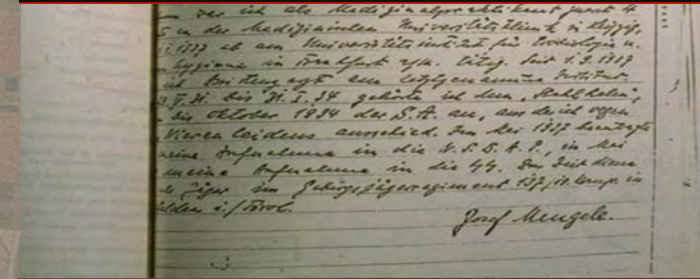 war ich als Medizinalpraktikant zuerst 4
an der Medizinischen Universitätsklinik in Leipzig,
1937 ab am Universitätsinstitut für Erbbiologie u.
hygiene in Frankfurt a/M. tätig. Seit 1.9.1937
ich am letztgenannten Institut
31. bis 31.I.34 gehörte ich dem "Stahlhelm",
bis Oktober 1934 der S.A. an, aus der ich wegen
Nierenleidens ausschied. Im Mai 1937 beantragte
meine Aufnahme in die N.S.D.A.P., im Mai
meine Aufnahme in die SS. Zur Zeit diene
als Jäger im Gebirgsjägerregiment 137, Komp. in
i./Tirol.
Josef Mengele.